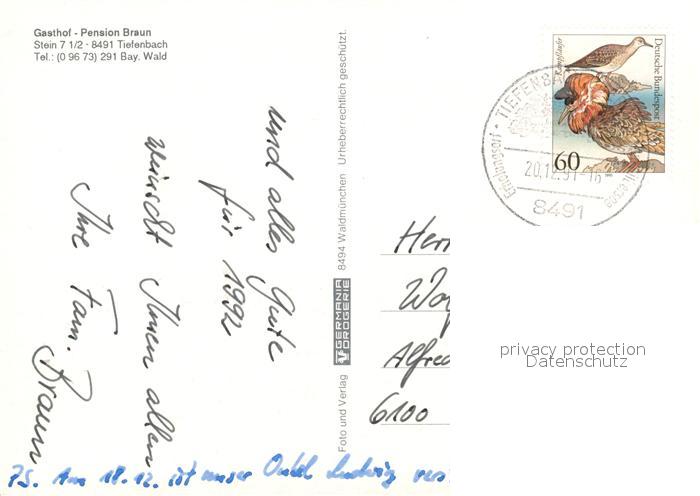 Gasthof - Pension Braun
Stein 7 1/2 · 8491 Tiefenbach
Tel.: (0 96 73) 291 Bay. Wald
und alles Gute
für 1992
wünscht Ihnen allen
Ihre Fam. Braun
P.S. Am 18.12. ist unser Onkel Ludwig
Foto und Verlag
GERMANIA
DROGERIE
8494 Waldmünchen Urheberrechtlich geschützt.
Kampfläufer
Deutsche Bundespost
60
Erholungsort · TIEFENB
20.12.91-16
8491
Herr
Alfred
6100
privacy protection
Datenschutz